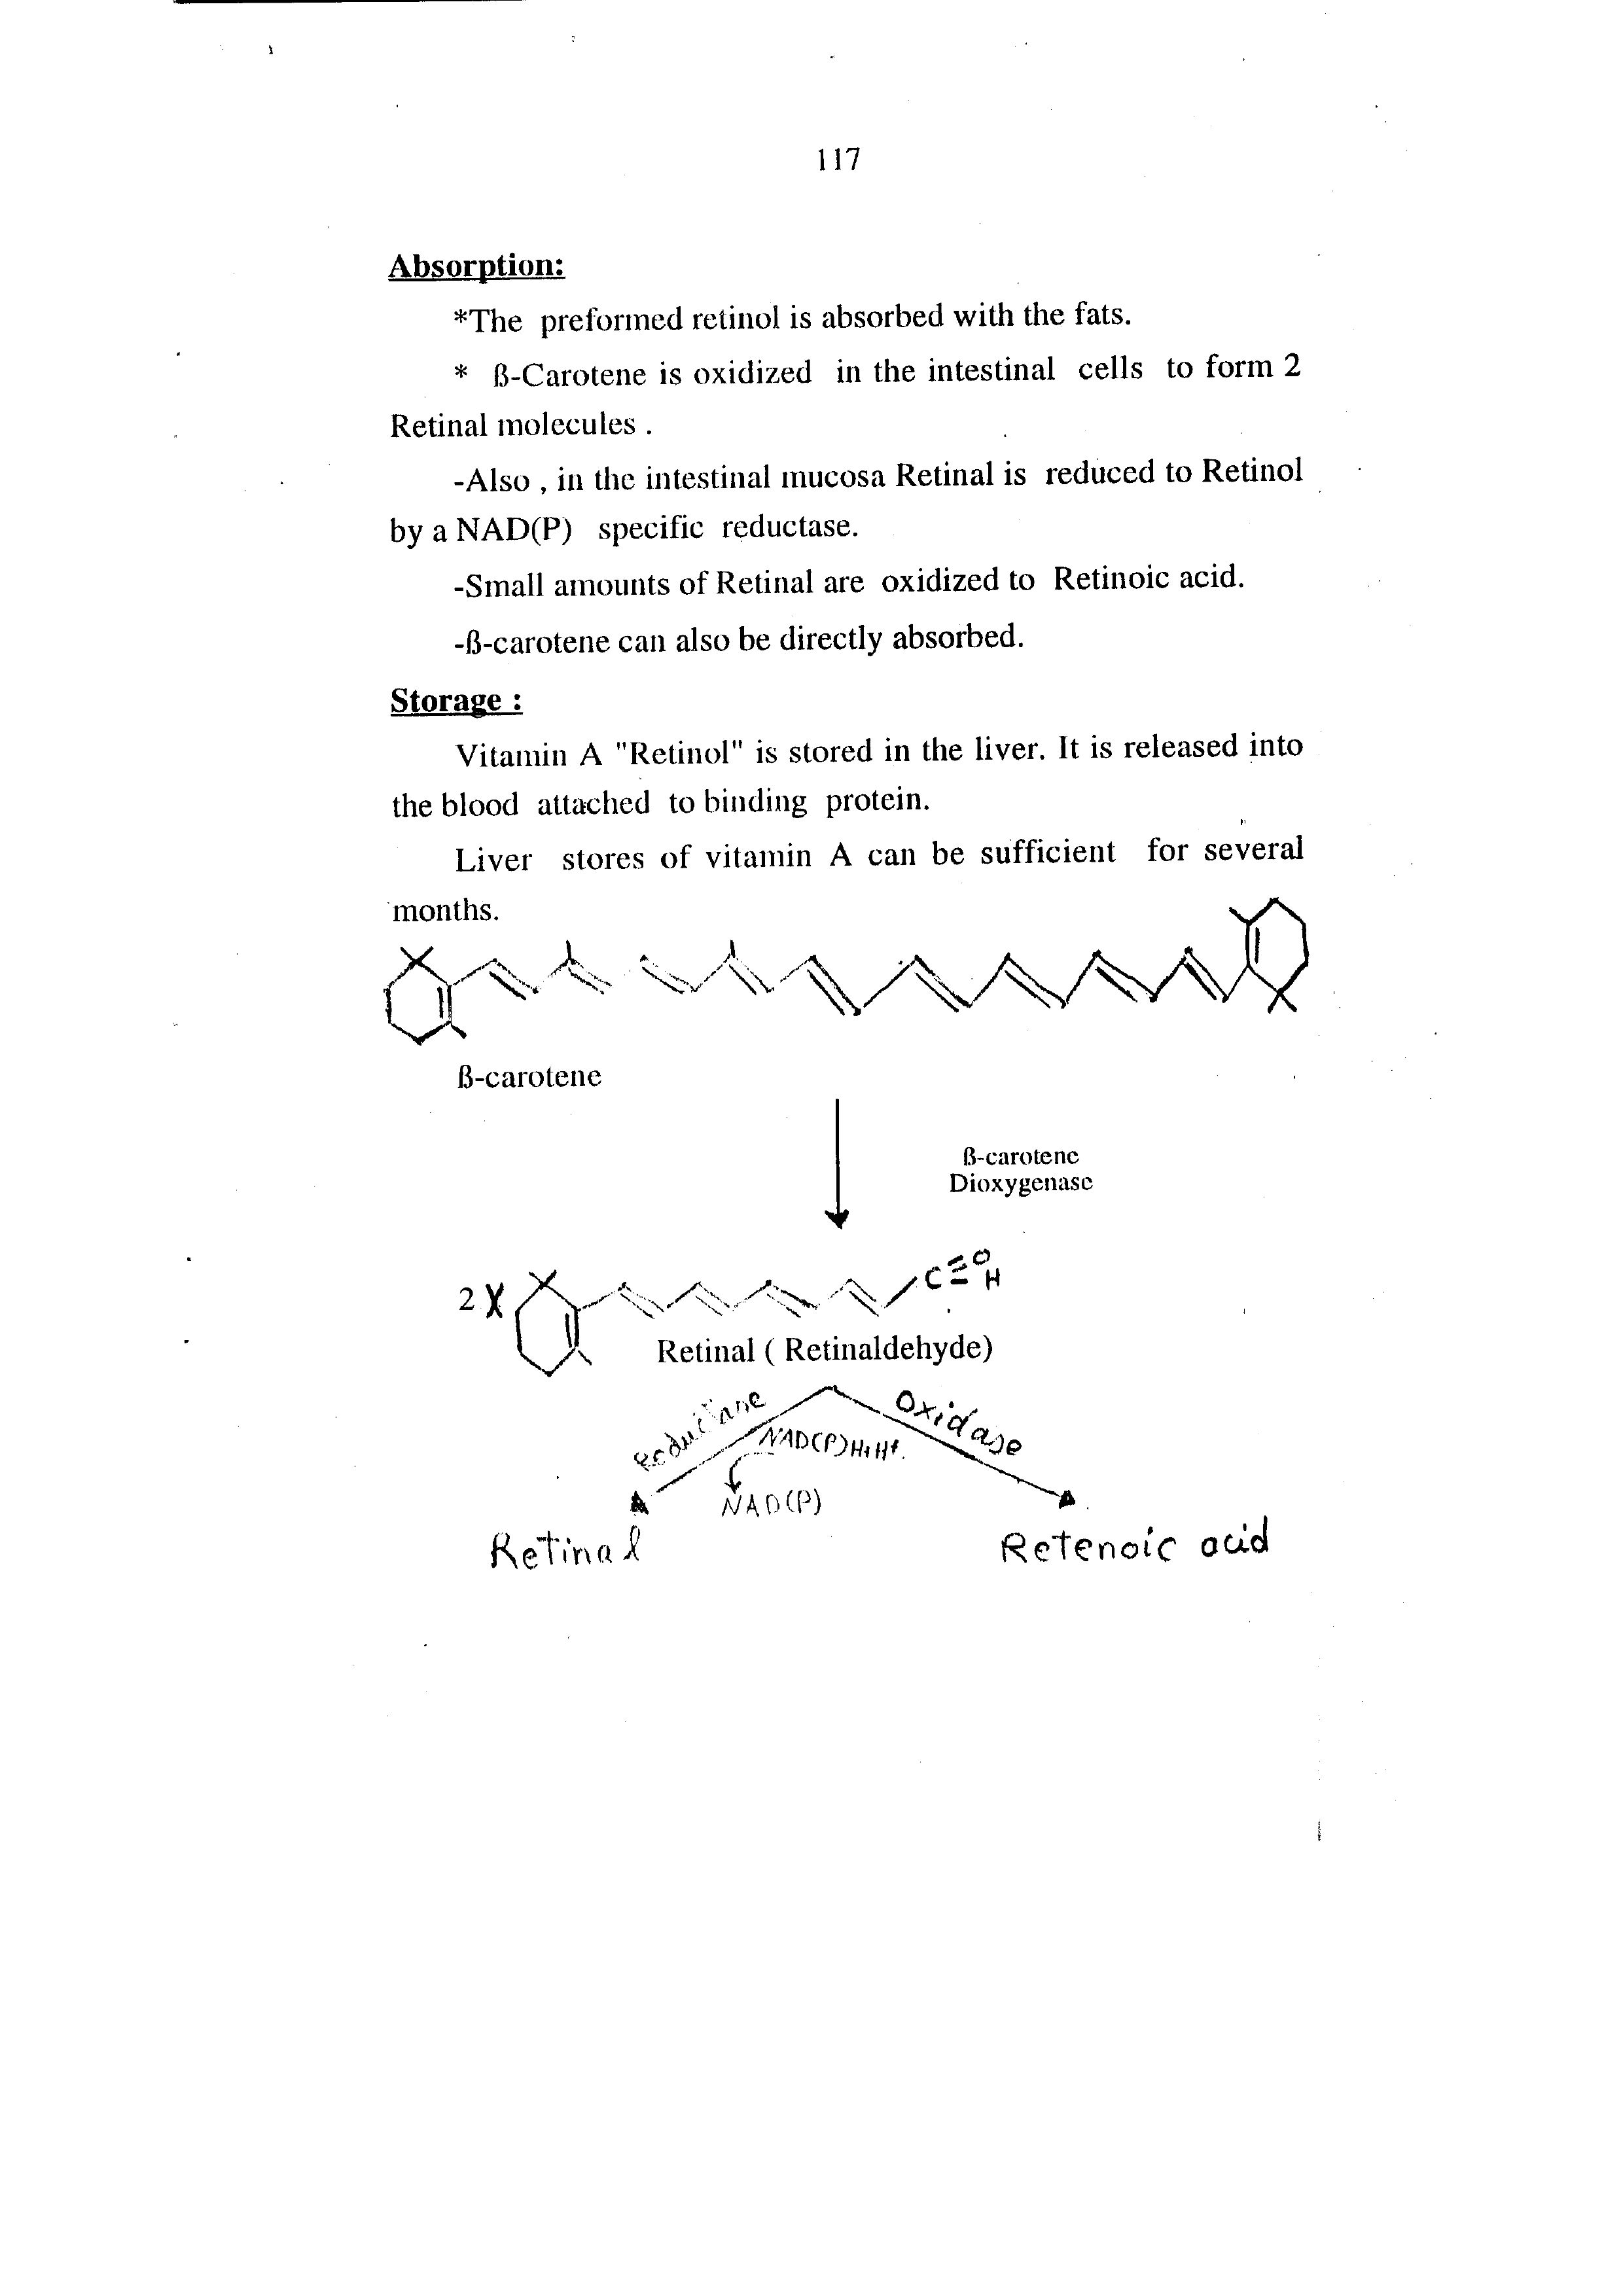 117
Absorption:
*The preformed retinol is absorbed with the fats.
* ß-Carotene is oxidized in the intestinal cells to form 2
Retinal molecules .
-Also , in the intestinal mucosa Retinal is reduced to Retinol
by a NAD(P) specific reductase.
-Small amounts of Retinal are oxidized to Retinoic acid.
-ß-carotene can also be directly absorbed.
Storage :
Vitamin A "Retinol" is stored in the liver. It is released into
the blood attached to binding protein.
Liver stores of vitamin A can be sufficient for several
months.
ß-carotene
ß-carotene
Dioxygenase
2 X
C O
H
Retinal ( Retinaldehyde)
Reductase
Oxidase
NAD(P)H+H+.
NAD(P)
Retinal
Retenoic acid